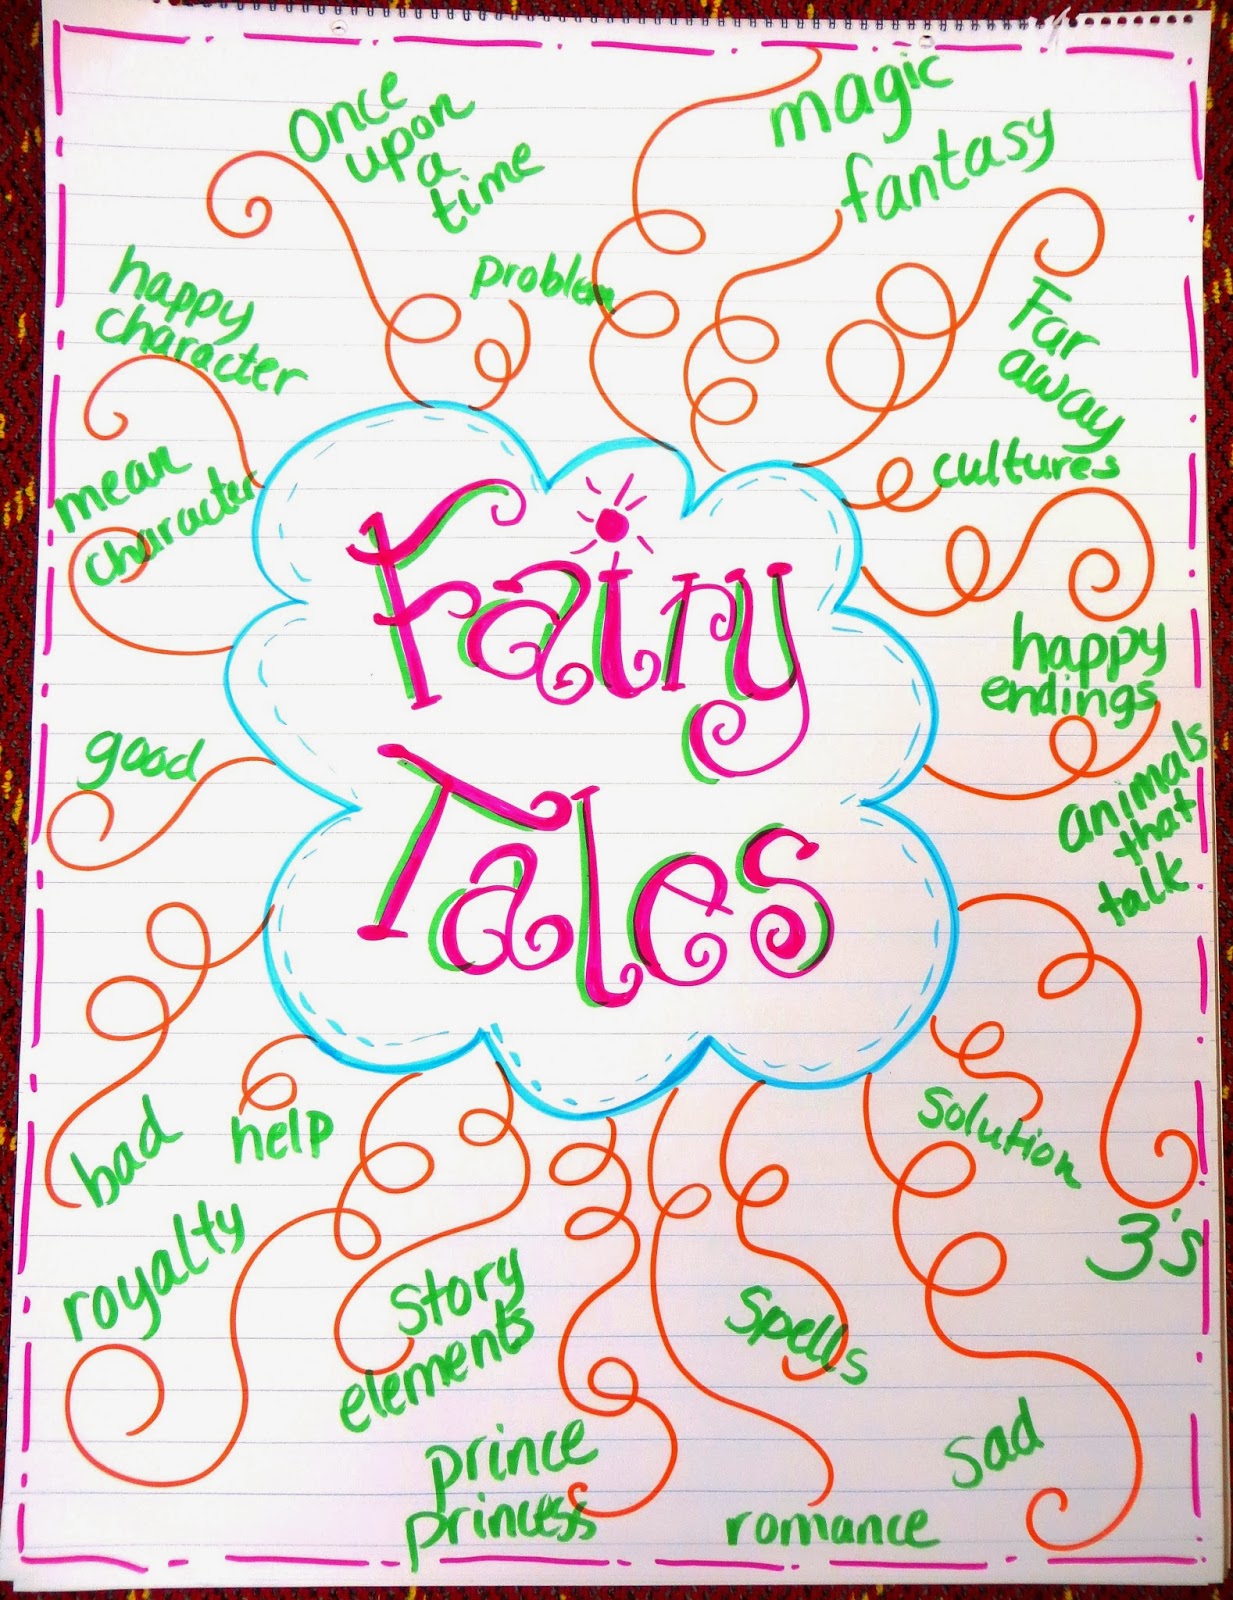 Once
upon
a
time
magic
fantasy
problem
happy
character
Far
away
mean
character
cultures
Fairy
Tales
happy
endings
good
animals
that
talk
bad
help
solution
royalty
3's
Story
elements
spells
prince
princess
sad
romance